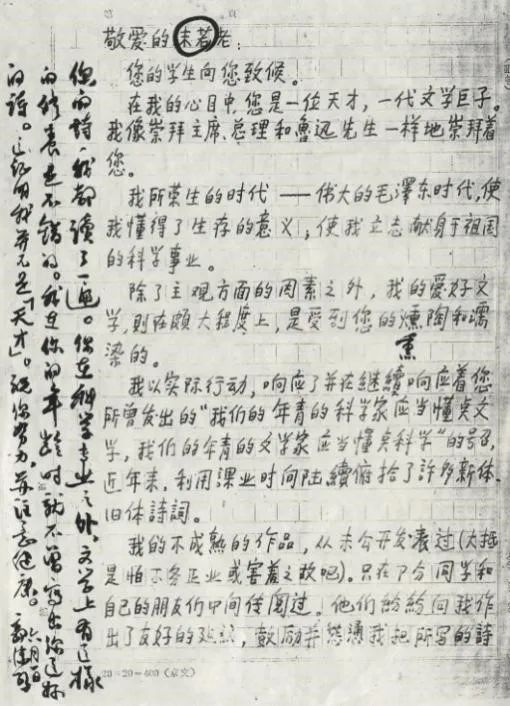 敬爱的沫若老：
您的学生向您致候。
在我的心目中，您是一位天才，一代文学巨子。
我像崇拜主席、总理和鲁迅先生一样地崇拜着
您。
我所荣生的时代——伟大的毛澤东时代，使
我懂得了生存的意义，使我立志献身于祖国
的科学事业。
除了主观方面的因素之外，我的爱好文
学，则在颇大程度上，是受到您的燻陶和濡
熏
染的。
我以实际行动，响应了并在继續响应着您
所曾发出的“我们的年青的科学家应当懂点文
学，我们的年青的文学家应当懂点科学”的号召，
近年来，利用课业时间陆續俯拾了許多新体、
旧体詩詞。
我的不成熟的作品，从未公开发表过（大抵
是怕不务正业或害羞之故吧）。只在部分同学和
自己的朋友们中间传阅过。他们紛紛向我作
出了友好的，鼓励并慫恿我把所写的詩
20×20=400（京文）
你的诗，我都读了一遍。你在科学专业之外，文学上有这样
的修养是不错的。我在你的年龄时就不曾写出你这样
的诗。这证明我并不是「天才」。祝你努力，并注意健康。
郭沫若
六月一日